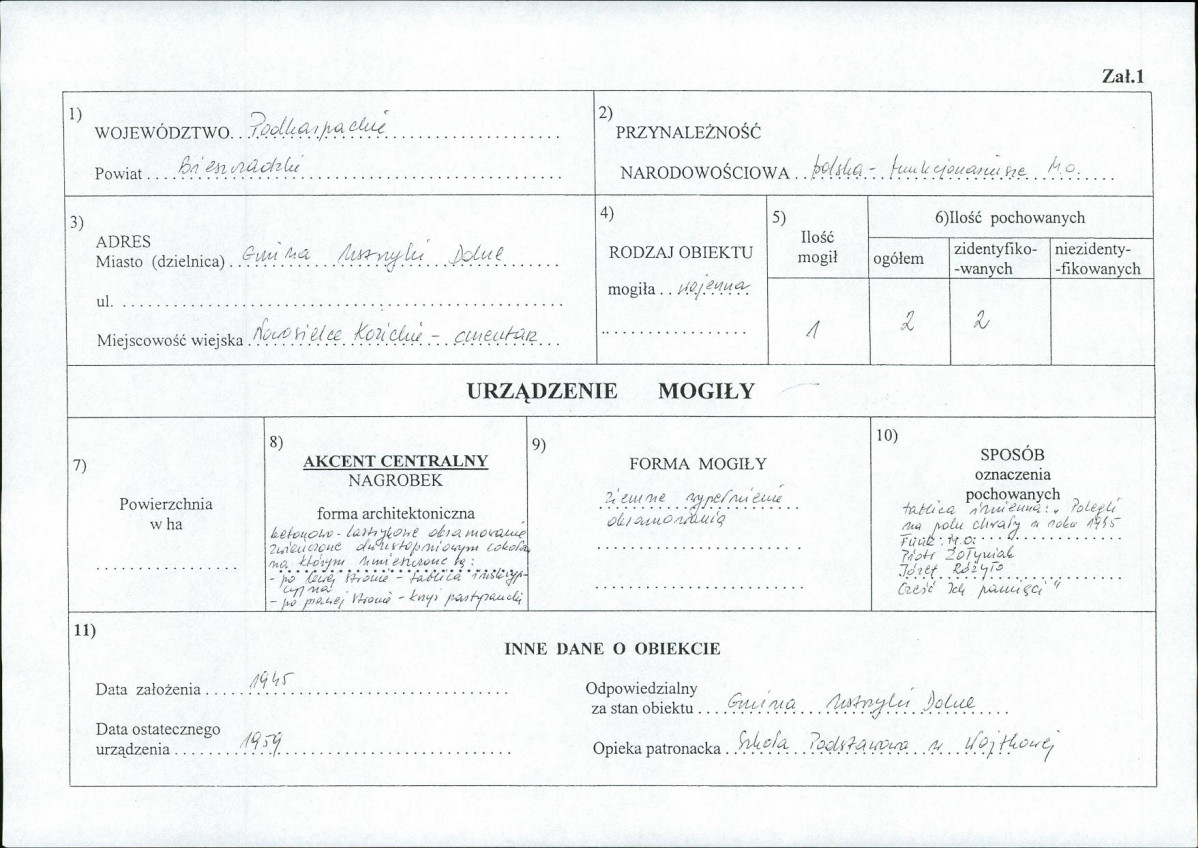 Zał.1
1)
WOJEWÓDZTWO.. Podkarpackie
Powiat.... Bieszczadzki
2)
PRZYNALEŻNOŚĆ
NARODOWOŚCIOWA.. polska - funkcjonariusze M.O.
3)
ADRES
Miasto (dzielnica).. Gmina Ustrzyki Dolne
ul.
Miejscowość wiejska. Nowosielce Kozickie - cmentarz
4)
RODZAJ OBIEKTU
mogiła.. wojenna
5)
Ilość
mogił
1
6)Ilość pochowanych
ogółem
2
zidentyfiko-
-wanych
2
niezidenty-
-fikowanych
URZĄDZENIE MOGIŁY
7)
Powierzchnia
w ha
8)
AKCENT CENTRALNY
NAGROBEK
forma architektoniczna
betonowo-lastrykowe obramowanie
zwieńczone dwustopniowym cokołem
na którym umieszczone są:
- po lewej stronie - tablica inskryp-
cyjna
- po prawej stronie - krzyż
9)
FORMA MOGIŁY
ziemne wypełnienie
obramowania
10)
SPOSÓB
oznaczenia
pochowanych
tablica imienna: „Polegli
na polu chwały w roku 1945
Funk. M.O.
Piotr Żołyniak
Józef
Cześć Ich pamięci"
11)
INNE DANE O OBIEKCIE
Data założenia.... 1945
Data ostatecznego
urządzenia........ 1959
Odpowiedzialny
za stan obiektu.... Gmina Ustrzyki Dolne
Opieka patronacka.. Szkoła Podstawowa w Wojtkowej